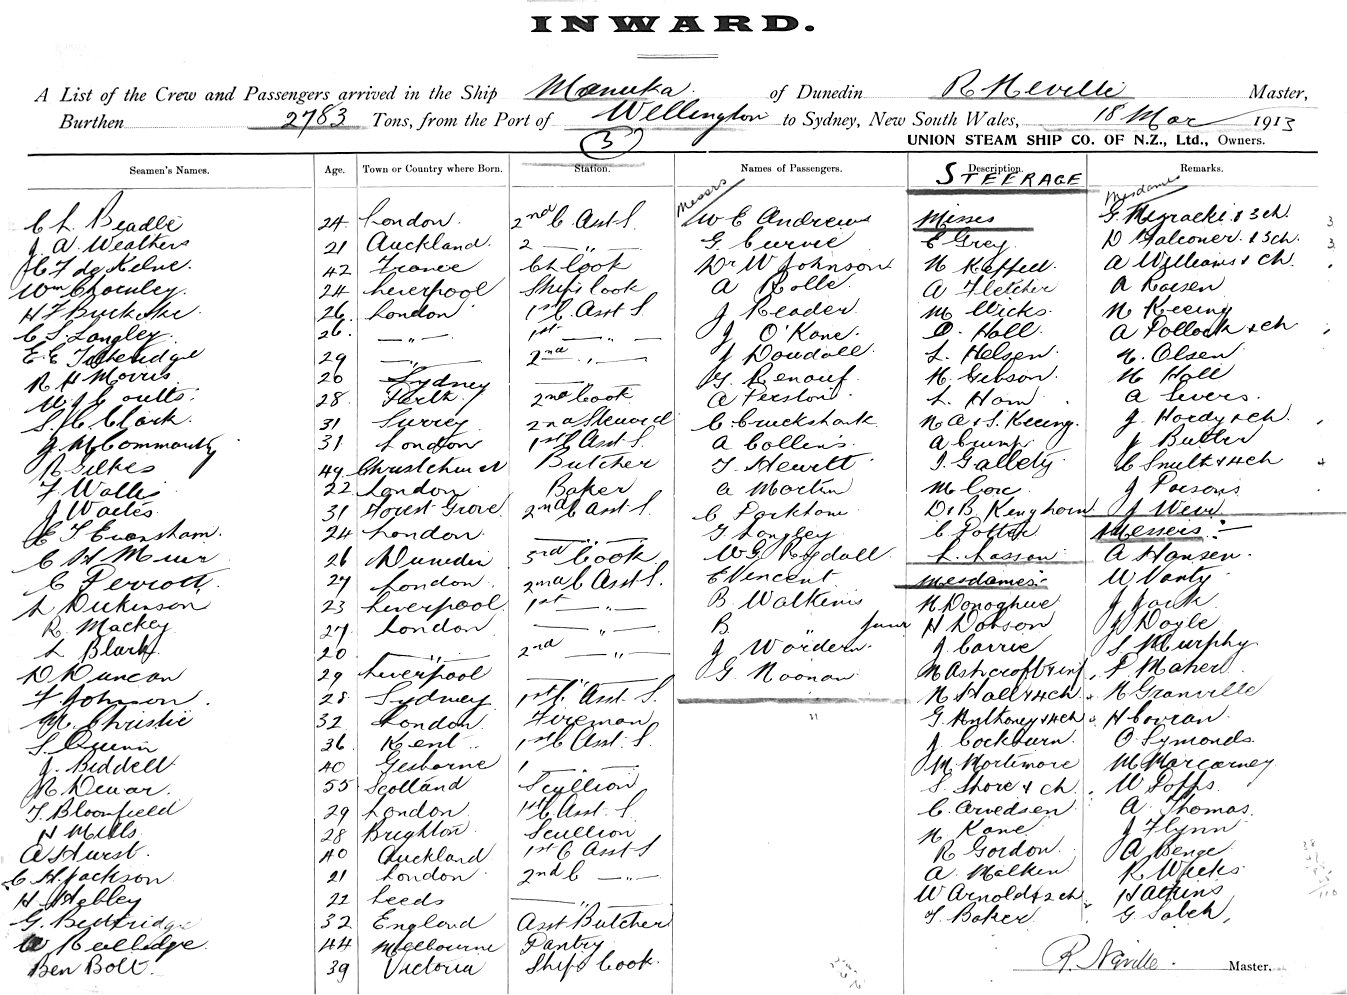 INWARD.
A List of the Crew and Passengers arrived in the Ship Manuka of Dunedin R Neville Master,
Burthen 2783 Tons, from the Port of Wellington to Sydney, New South Wales, 18 Mar 1913
3 UNION STEAM SHIP CO. OF N.Z., Ltd., Owners.
Seamen's Names. Age. Town or Country where Born. Station. Names of Passengers. Description. Remarks.
Messrs STEERAGE Mesdames
C L Beadle 24 London 2nd C Asst S. W E Andrews Misses & 3 ch 3
J A Weathers 21 Auckland 2 — " — G Currie E Grey D Falconer & 3 ch. 3
42 France Ch Cook Dr W Johnson N A Williams & ch
Wm Chornley 24 Liverpool Ships Cook A Rolle A Fletcher A
H F 26 London 1st C. Asst S J Reader M Wicks N Keeing
C S. Langley 26 — " — 1st — " — J O'Kane D. Hall A Pollock & ch
E E 29 — " — 2nd — " — J Dowdall L. Nelsen N. Olsen
R H Morris 26 Sydney — " — G. Renouf N. Gibson N Hall
W J Coutts 28 Perth 2nd Cook A L. Ham A
S. C Clark 31 Surrey 2nd Steward C Cruckshank N A & S. Keeing J Hardy & ch
J 31 London 1st C Asst S A Collins A Crump J Butler
R Gilkes 49 Christchurch Butcher T Hewitt I. C Smith & 4 ch
F Wallis 22 London Baker A Martin M Cox J Parsons
J 31 Forest Grove 2nd C Asst S. C D & B. Kinghorn J Weir
C F Evansham 24 London — " — G Langley C Potter Messrs: —
C H Muir 26 Dunedin 3rd Cook W G L. Lasson A Hansen
C Perrott 27 London 2nd C Asst S. E Vincent Mesdames:- W Vanty
L Dickinson 23 Liverpool 1st — " — B Watkins N Donoghue J
R. Mackey 27 London — " — B " Junr H Dobson J Doyle
L Black 20 — " — 2nd — " — J Worden J Carrie S Murphy
D Duncan 29 Liverpool — " — G. Noonan N Ashcroft & inf P Maher
F Johnson 28 Sydney 1st C. Asst S. N Hall & 4 ch N Granville
M. Christie 32 London Fireman " G. Anthoney & 4 ch H Covran
S Quinn 36 Kent 1st C Asst S. J Cockburn O Symonds
J. Biddell 40 Gisborne 1 — " — M. Mortimore M Marcarney
R Dewar. 55 Scotland Scullion S. Shore & ch W Popps
T. Bloomfield 29 London 1st C Asst S C. Arvedsen A Thomas
H Mills 28 Brighton Scullion N Kane J Flynn
A Hurst. 40 Auckland 1st C Asst S R Gordon A Benge
C H. Jackson 21 London 2nd C — " — A. Malkin R Wicks
H. Hebley 22 Leeds — " — W Arnold & 2 ch H Atkins
G. Bettridge 32 England Asst Butcher T. Baker G
W Rutledge 44 Melbourne Pantry
Ben Bolt. 39 Victoria Ships Cook R. Neville Master.